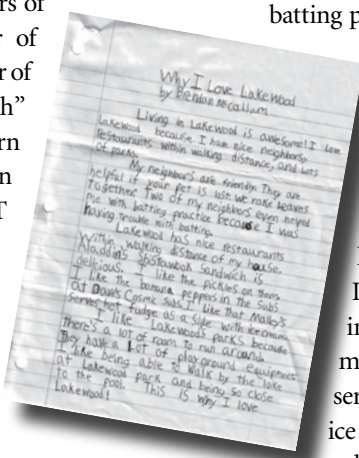 rs of
r of
r of
h”
rn
n
T
batting p
Why I Love Lakewood
by Brendan McCallum
Living in Lakewood is awesome! I love
Lakewood because I have nice neighbors,
restaurants within walking distance, and lots
of parks.
My neighbors are friendly. They are
helpful if your pet is lost we rake leaves
together. Two of my neighbors even helped
me with batting practice because I was
having trouble with batting.
Lakewood has nice restaurants
within walking distance of my house.
Aladdin's sandwich is
delicious. I like the pickles on them.
I like the banana peppers in the subs
at Dave's Cosmic subs. I like that Malley's
serves hot fudge as a side with ice cream.
I like Lakewoods parks because
there's a lot of room to run around.
They have a lot of playground equipment.
I like being able to walk by the lake
at Lakewood park and being so close
to the pool. This is why I love
Lakewood!
I
in
m
ser
ice